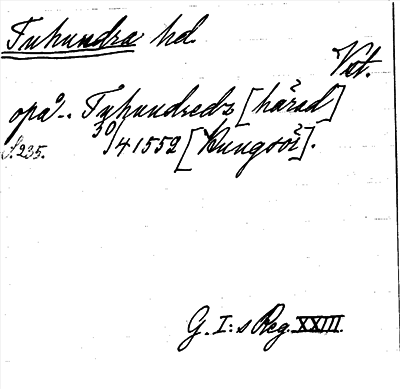 Tuhundra hd.
Vst.
opå -. Tuhundredz [härad]
S. 235. 30/4 1552 [Kungsör].
G. I:s Reg. XXIII.